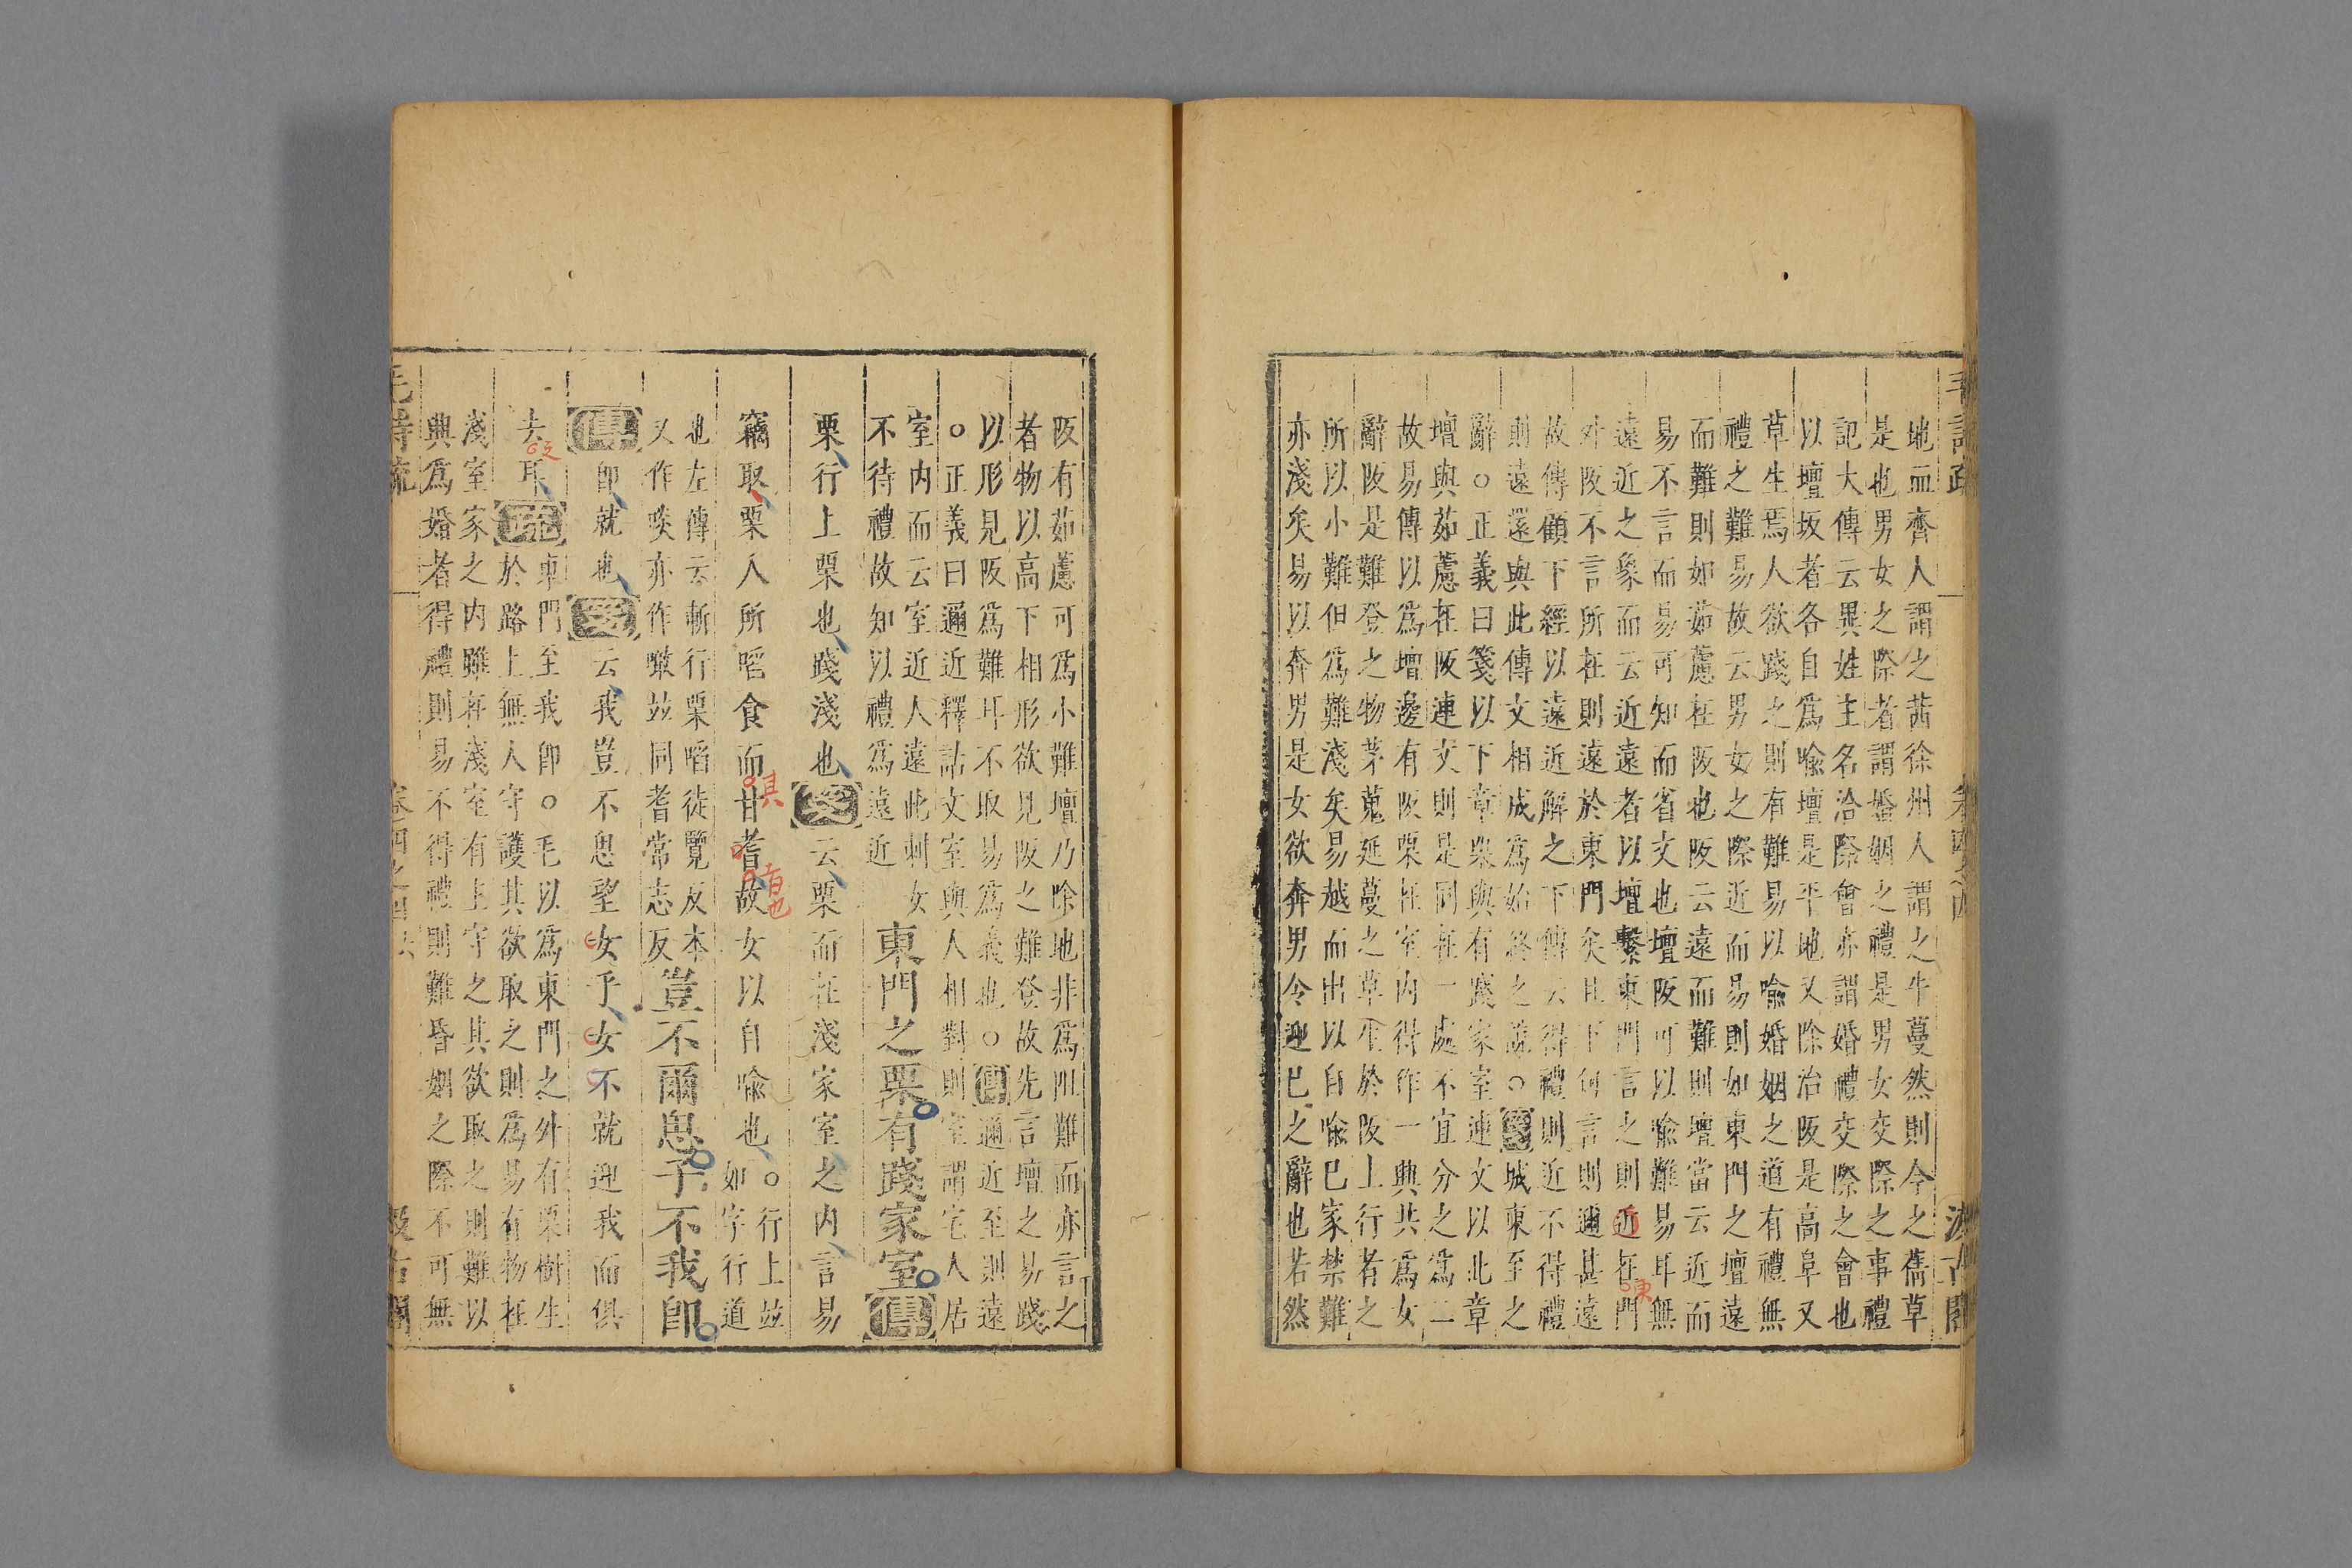 毛詩疏
地血齊人謂之茜徐州人謂之牛蔓然則今之蒨草
是也男女之際者謂婚姻之禮是男女交際之事禮
記大傳云異姓主名治際會亦謂婚禮交際之會也
以壇坂者各自爲喻壇是平地又除治阪是高阜又
草生焉人欲踐之則有難易以喻婚姻之道有禮無
禮之難易故云男女之際近而易則如東門之壇遠
而難則如茹藘在阪也阪云遠而難則壇當云近而
易不言而易可知而省文也壇阪可以喻難易耳無
遠近之象而云近遠者以壇繫東門言之則近在門
外阪不言所在則遠於東門矣且下句言則邇甚遠
故傳顧下經以遠近解之下傳云得禮則近不得禮
則遠還與此傳文相成爲始終之說○箋城東至之
辭○正義曰箋以下章栗與有踐家室連文以此章
壇與茹藘在阪連文則是同在一處不宜分之爲二
故易傳以爲壇邊有阪栗在室内得作一興共爲女
辭阪是難登之物茅蒐延蔓之草生於阪上行者之
所以小難但爲難淺矣易越而出以自喻已家禁難
亦淺矣易以奔男是女欲奔男令迎已之辭也若然
阪有茹藘可爲小難壇乃除地非爲阻難而亦言之
者物以高下相形欲見阪之難登故先言壇之易踐
以形見阪爲難耳不取易爲義也○傳邇近至則遠
○正義曰邇近釋詁文室與人相對則室謂宅人居
室内而云室近人遠此刺女
不待禮故知以禮爲遠近
東門之栗有踐家室傳
栗行上栗也踐淺也箋云栗而在淺家室之内言易
竊取栗人所啗食而甘耆故女以自喻也
其
百也
○行上竝
如字行道
也左傳云斬行栗啗徒覽反本
又作啖亦作噉竝同耆常志反
豈不爾思子不我卽
傳卽就也箋云我豈不思望女乎女不就迎我而俱
去耳疏
之
東門至我卽○毛以爲東門之外有栗樹生
於路上無人守護其欲取之則爲易有物在
淺室家之内雖在淺室有主守之其欲取之則難以
興爲婚者得禮則易不得禮則難昏姻之際不可無
毛詩疏
卷四之四
汲古閣